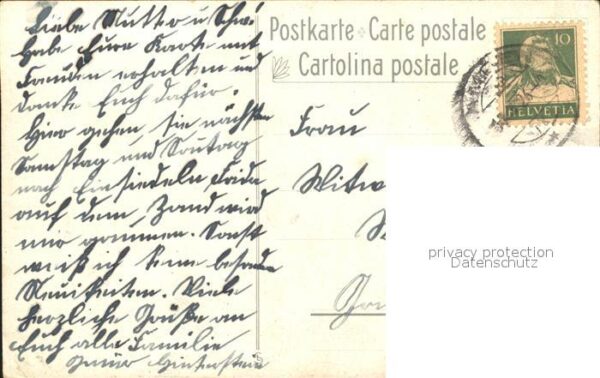 Liebe Mutter u Schw.
Habe Eure Karte mit
Freuden erhalten und
danke Euch dafür.
Hier gehen, sie nächsten
Samstag und Sontag
nach Einsiedeln
auf dem, wird
mir genommen. Sonst
weiß ich keine besonde
Neuikeiten. Viele
herzliche Grüße an
Euch alle Familie
Hinterstein
Postkarte Carte postale
Cartolina postale
10
HELVETIA
Frau
Witw
privacy protection
Datenschutz